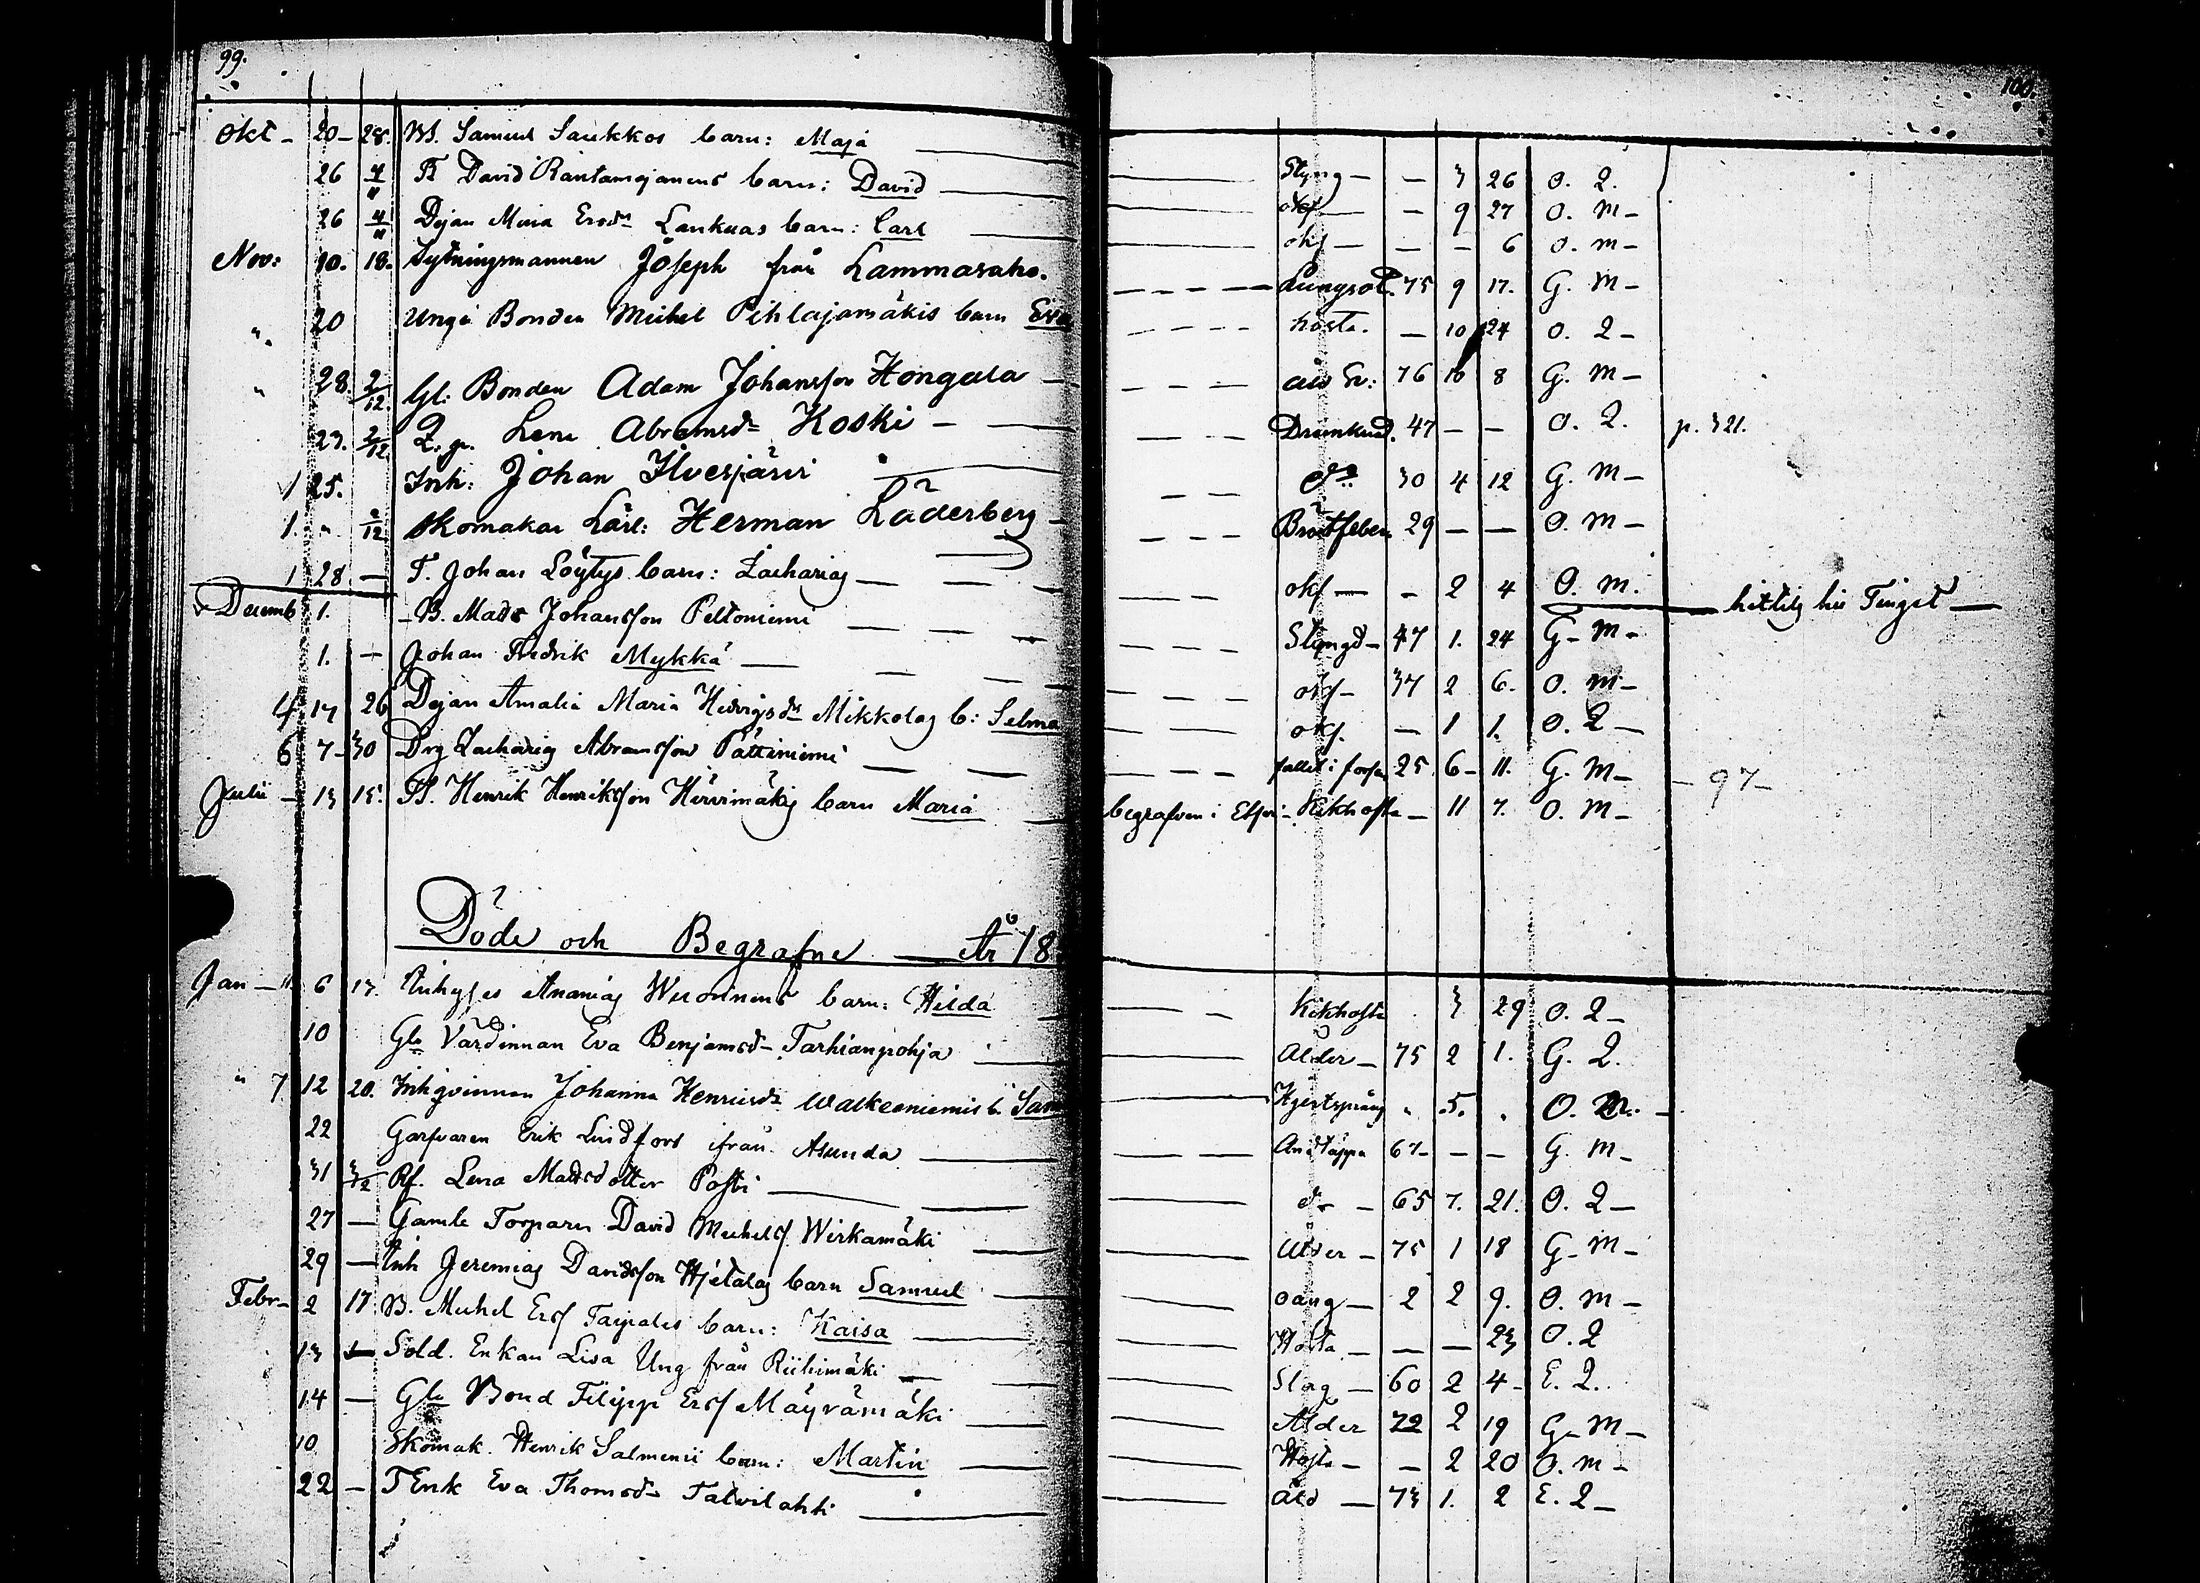 99.
100.
Okt - 20 - 28. Bd. Samuel Saukkos barn: Maja — Styng — — 3 26 O. Q.
26 4/11 Tp David Rantamajanens barn: David — okf — — 9 27 O. M —
26 4/11 Pigan Mina Ersdr Lankuas barn: Carl — okf — — — 6 O. M —
Nov: 10. 18. Sytningsmannen Joseph från Lammasaho. — Lungsot. 75 9 17. G. M —
" 20 Unga Bonden Michel Pihlajamäkis barn Eva — hosta. — 10 24 O. Q —
" 28. 2/12. Gl: Bonden Adam Johansson Hongala — 76 10 8 G. M —
23. 2/12 Q. p. Lena Abramsdr Koski — Drunknad. 47 — — O. Q. p. 321.
1 25. Inh: Johan Ilvesjärvi — do 30 4 12 G. M —
1. " 2/12 Skomakar Lärl: Herman Läderberg — Bröstfeber 29 — — O. M —
1 28. — T. Johan Löytys barn: Zacharias — okf — — 2 4 O. M.
Decemb 1. B. Mads Johansson Peltoniemi — Styngd — 47 1. 24 G — M — hittils hu Tingst —
1. — Johan Fredrik Mykkä — okf — 37 2 6. O. M —
4 17 26 Pigan Amalia Maria Hedvigsdr Mikkolas b: Selma — okf. — 1 1. O. Q —
6 7 - 30 Drg Zacharias Abramsson Pättiniemi — fallit i forsen 25 6 — 11. G. M — 97 —
Julii — 13 15. Tp. Henrik Henriksson Hirvimäkis barn Maria — begrafven i Etseri — Kikhosta — 11 7. O. M —
Döde och Begrafne — År 18
Jan — 11 6 17. Inhyses Ananias Weronens barn: Hilda — Kikhosta . 3 29 O. Q —
10 Gla Värdinnan Eva Benjamsd — Tarhianpohja — Ålder — 75 2 1. G. Q.
" 7 12 20. Inhqvinnan Johanna Henriksdr Walkeaniemis b. Sam — Hjertsprång " .5. . O. M. —
22 Garfvaren Erik Lindfors ifrån Asunda — Andtäppa 67 — — — G. M —
31 3/2 Pf. Lena Madsdotter Posti — do — 65 7. 21. O. Q —
27 — Gamle Torparn David Michelss. Wirkamäki — Ålder — 75 1 18 G — M —
29 — Inh Jeremias Davidsson Hjetalas barn Samuel — oäng — 2 2 9. O. M —
Febr — 2 17 B. Michel Ersf Taipales barn: Kaisa — Hosta — — — 23 O. Q
13 — Sold. Enkan Lisa Ung från Riihimäki — Slag — 60 2 4 — E. Q.
14 — Gle Bond Filipp Ersf Mäyrämäki — Ålder 72 2 19 G — M —
10 Skomak. Henrik Salmenii barn: Martin — Hosta — — 2 20 O. M —
22 — T Enk Eva Thomsdr Talvilahti — Åld — 73 1. 2 E. Q —